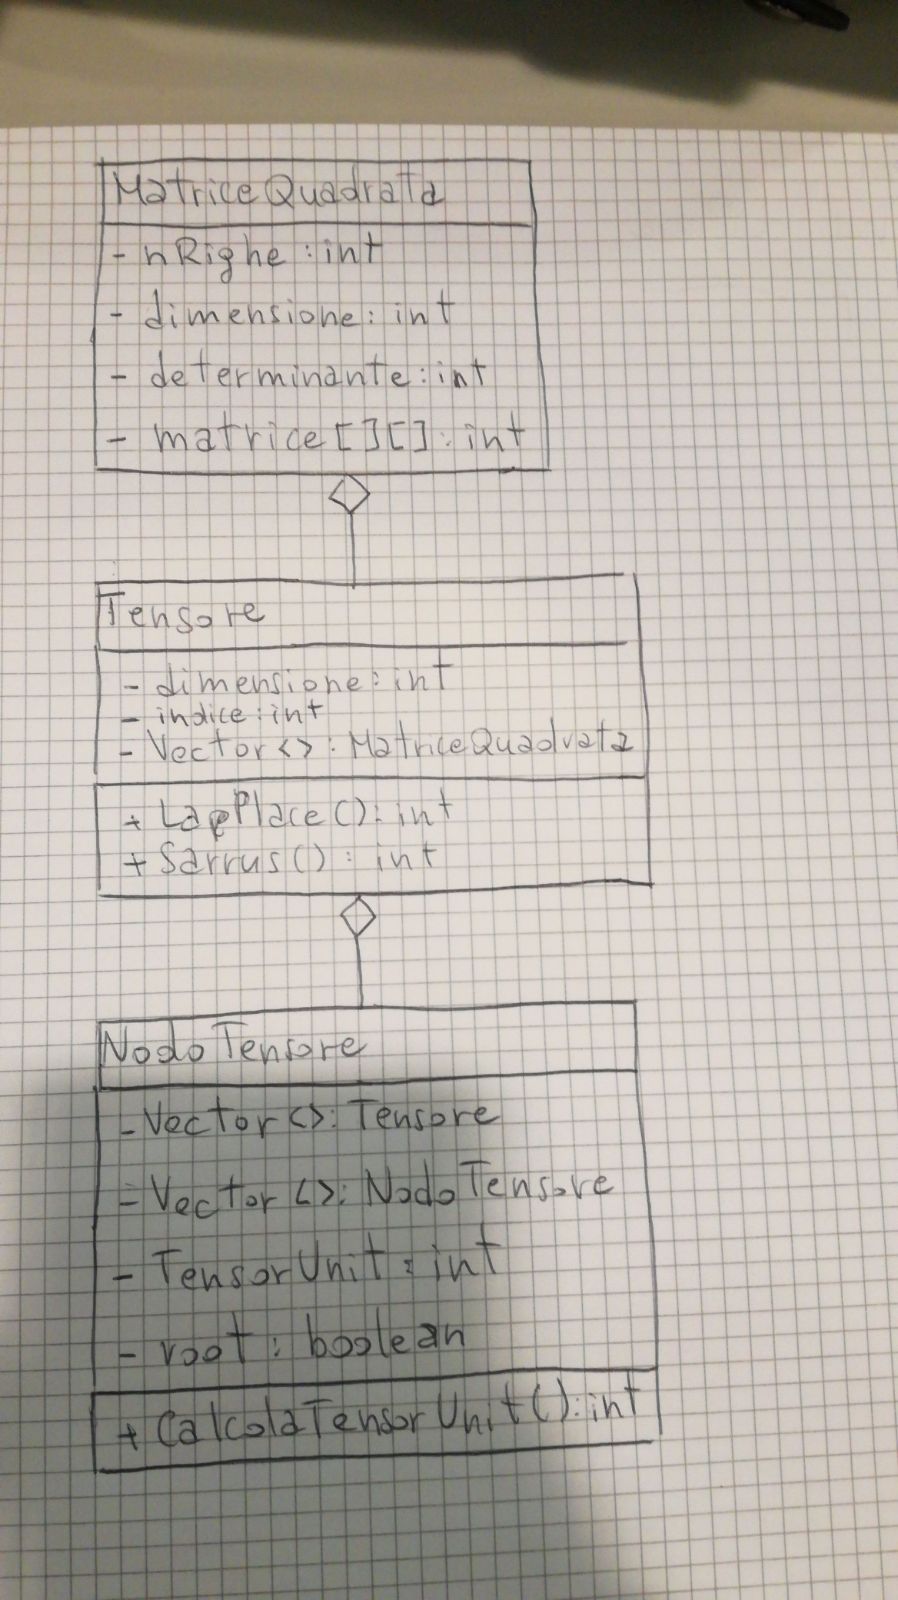 MatriceQuadrata
- nRighe : int
- dimensione : int
- determinante : int
- matrice [][] : int
Tensore
- dimensione : int
- indice : int
- Vector <> : MatriceQuadrata
+ LapPlace() : int
+ Sarrus() : int
NodoTensore
- Vector <> : Tensore
- Vector <> : NodoTensore
- TensorUnit : int
- root : boolean
+ CalcolaTensorUnit() : int